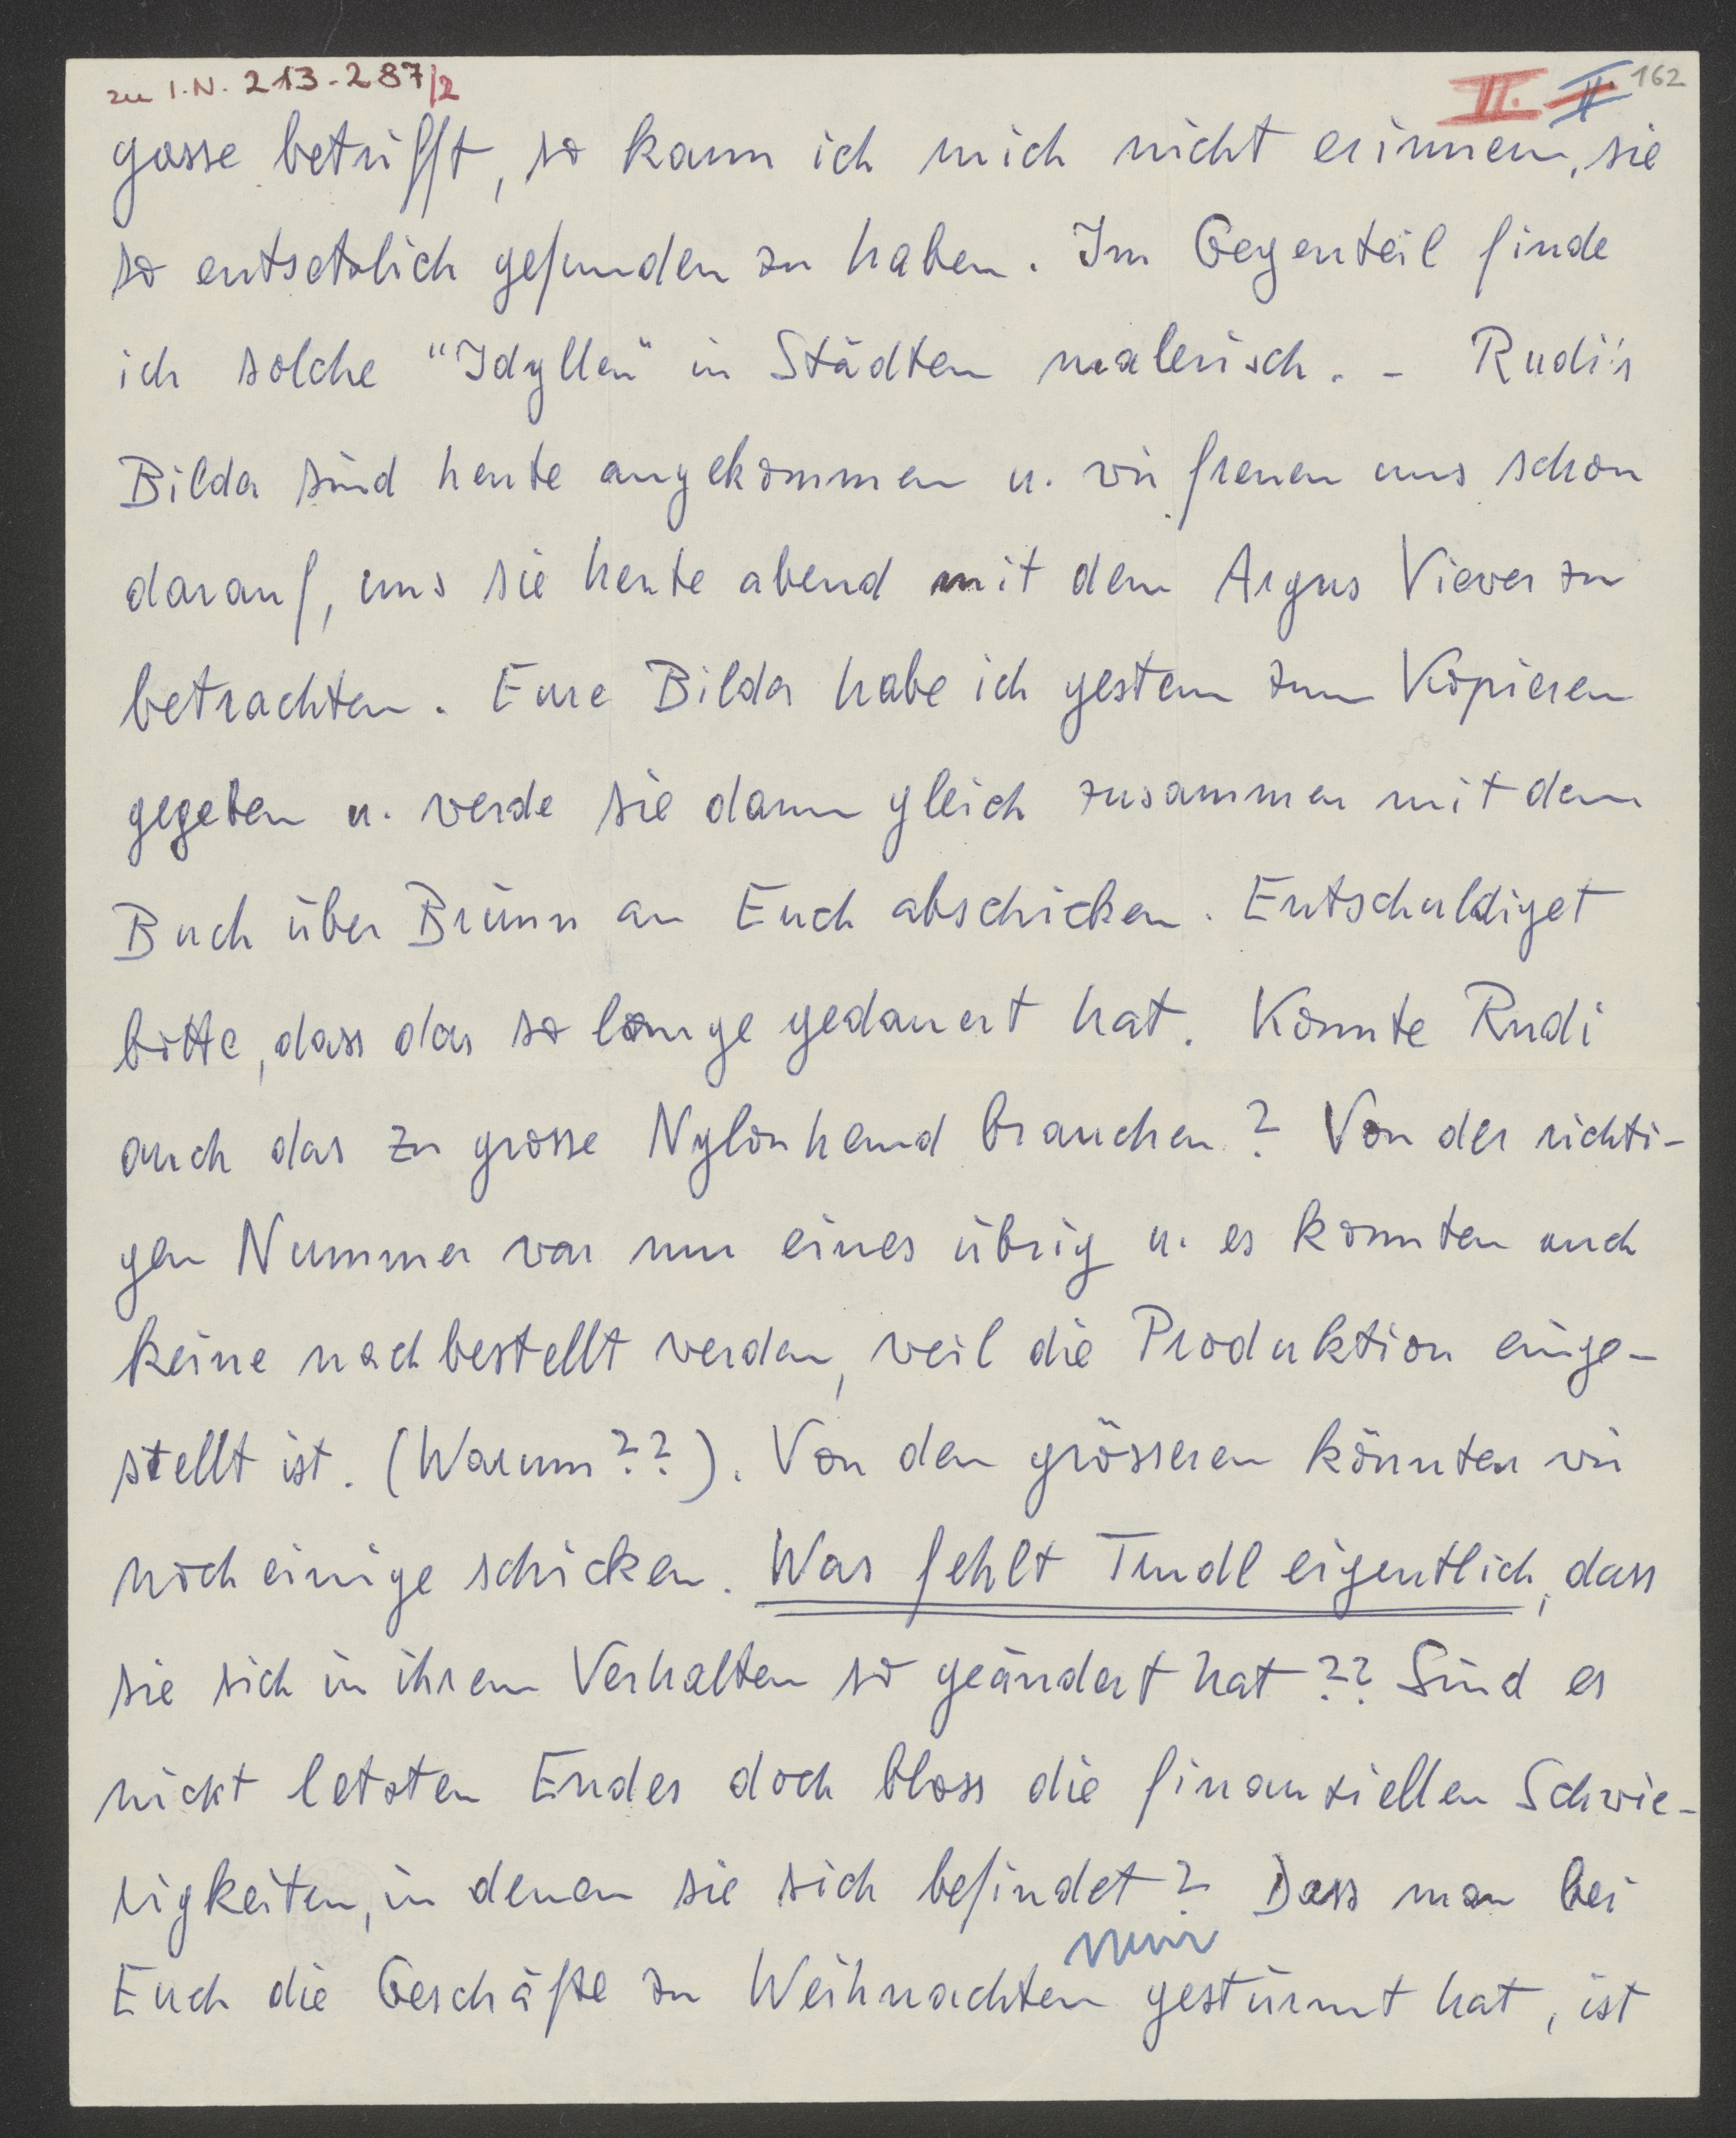 zu I.N. 213-287/2
VI. II. 162
gasse betrifft, so kann ich mich nicht erinnern, sie
so entsetzlich gefunden zu haben. Im Gegenteil finde
ich solche "Idyllen" in Städten malerisch. - Rudi's
Bilder sind heute angekommen u. wir freuen uns schon
darauf, uns sie heute abend mit dem Argus Viewer zu
betrachten. Eure Bilder habe ich gestern zum Kopieren
gegeben u. werde sie dann gleich zusammen mit dem
Buch über Brünn an Euch abschicken. Entschuldiget
bitte, dass das so lange gedauert hat. Könnte Rudi
auch das zu grosse Nylonhemd brauchen? Von der richti-
gen Nummer war nur eines übrig u. es konnten auch
keine nachbestellt werden, weil die Produktion einge-
stellt ist. (Warum??). Von den grösseren könnten wir
noch einige schicken. Was fehlt Trudl eigentlich, dass
sie sich in ihrem Verhalten so geändert hat?? Sind es
nicht letzten Endes doch bloss die finanziellen Schwie-
rigkeiten, in denen sie sich befindet? Dass man bei
Euch die Geschäfte zu Weihnachten gestürmt hat, ist